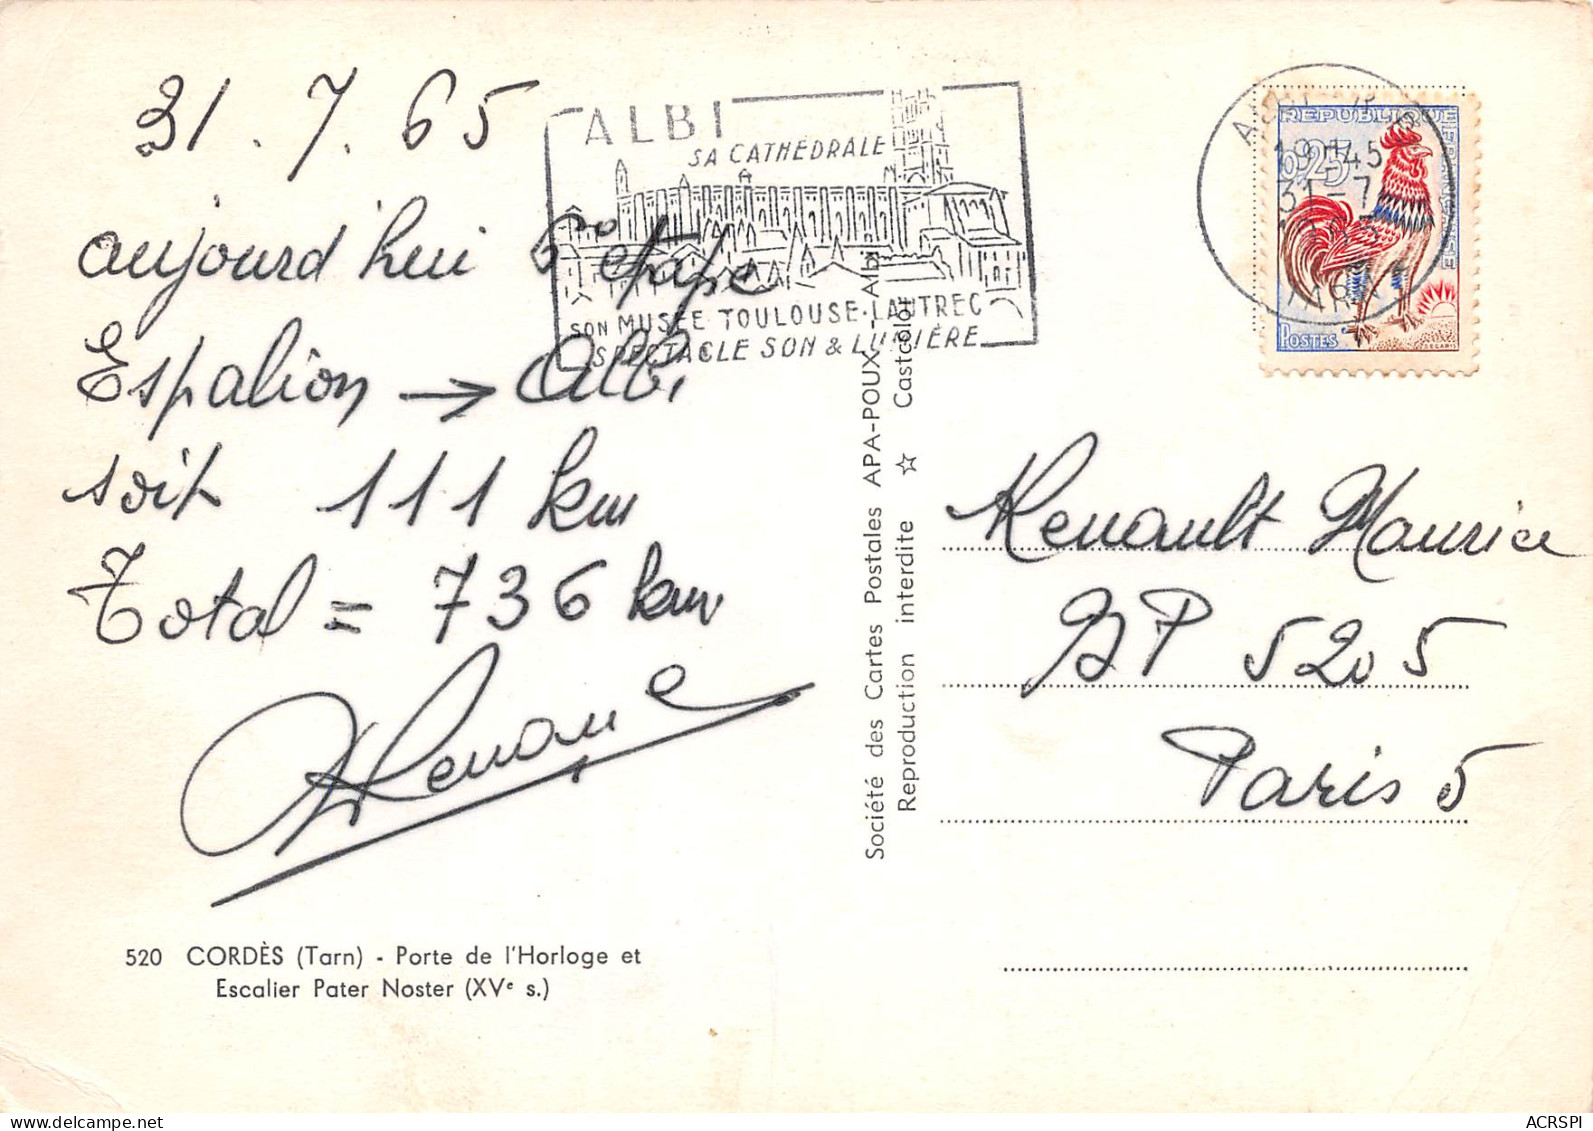 31.7.65
aujourd'hui 6me etape
Espalion → Albi
soit 111 km
Total = 736 km
520 CORDÈS (Tarn) - Porte de l'Horloge et
Escalier Pater Noster (XVe s.)
ALBI
SA CATHÉDRALE
SON MUSÉE TOULOUSE-LAUTREC
SPECTACLE SON & LUMIÈRE
Société des Cartes Postales APA-POUX - Albi
Reproduction interdite ☆ Castcolor
19H45
31-7
TARN
REPUBLIQUE
FRANÇAISE
0,25
POSTES
DECARIS
Renault Maurice
BP 5205
Paris 5
ACRSPI